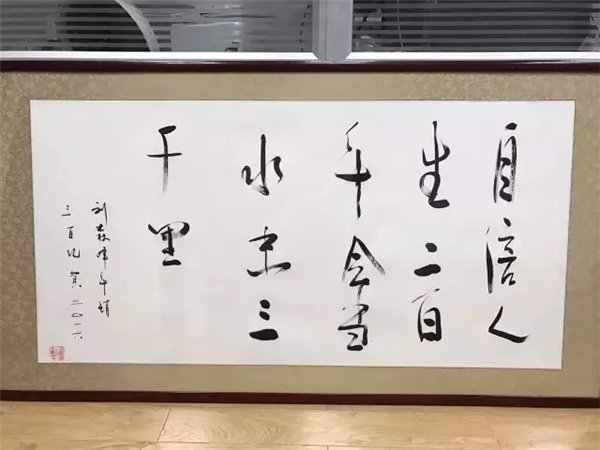 自信人
生二百
年会当
水击三
千里
刘森峰年
三百 贺二〇一六